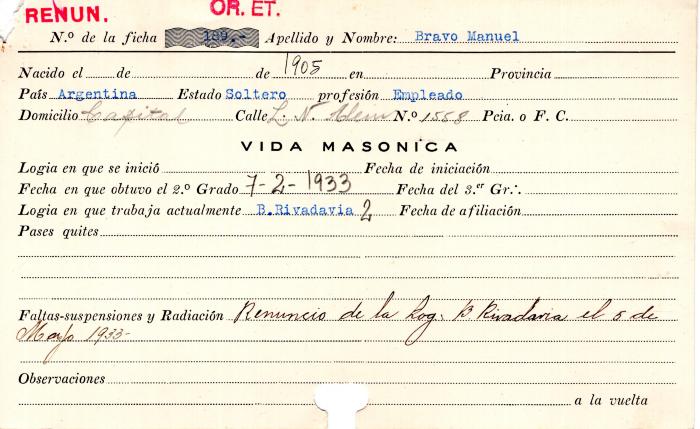 RENUN. OR. ET.
N.º de la ficha 189.- Apellido y Nombre: Bravo Manuel
Nacido el de de 1905 en Provincia
País Argentina Estado Soltero profesión Empleado
Domicilio Capital Calle L. N. Alem N.º 1558 Pcia. o F. C.
VIDA MASONICA
Logia en que se inició Fecha de iniciación
Fecha en que obtuvo el 2.º Grado 7-2-1933 Fecha del 3.er Gr.·.
Logia en que trabaja actualmente B.Rivadavia 2 Fecha de afiliación
Pases quites
Faltas-suspensiones y Radiación Renuncio de la Log: B Rivadavia el 5 de
Mayo 1933-
Observaciones
a la vuelta